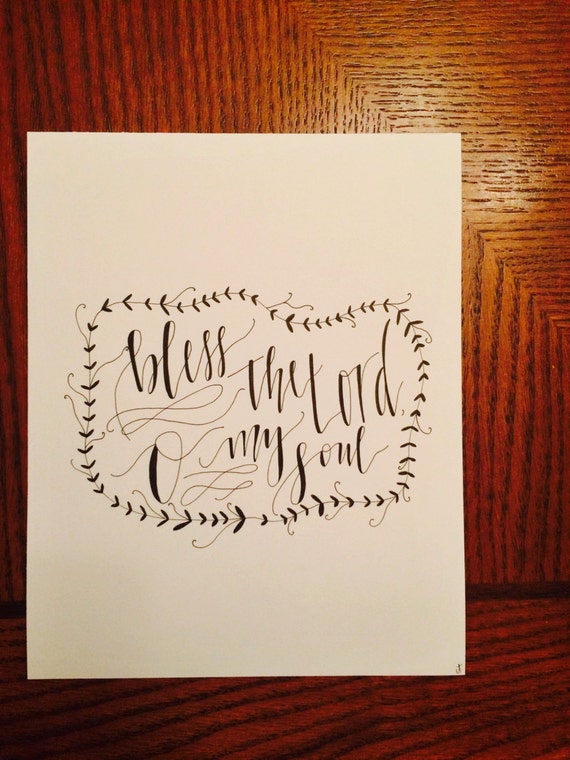 bless the Lord,
O my soul